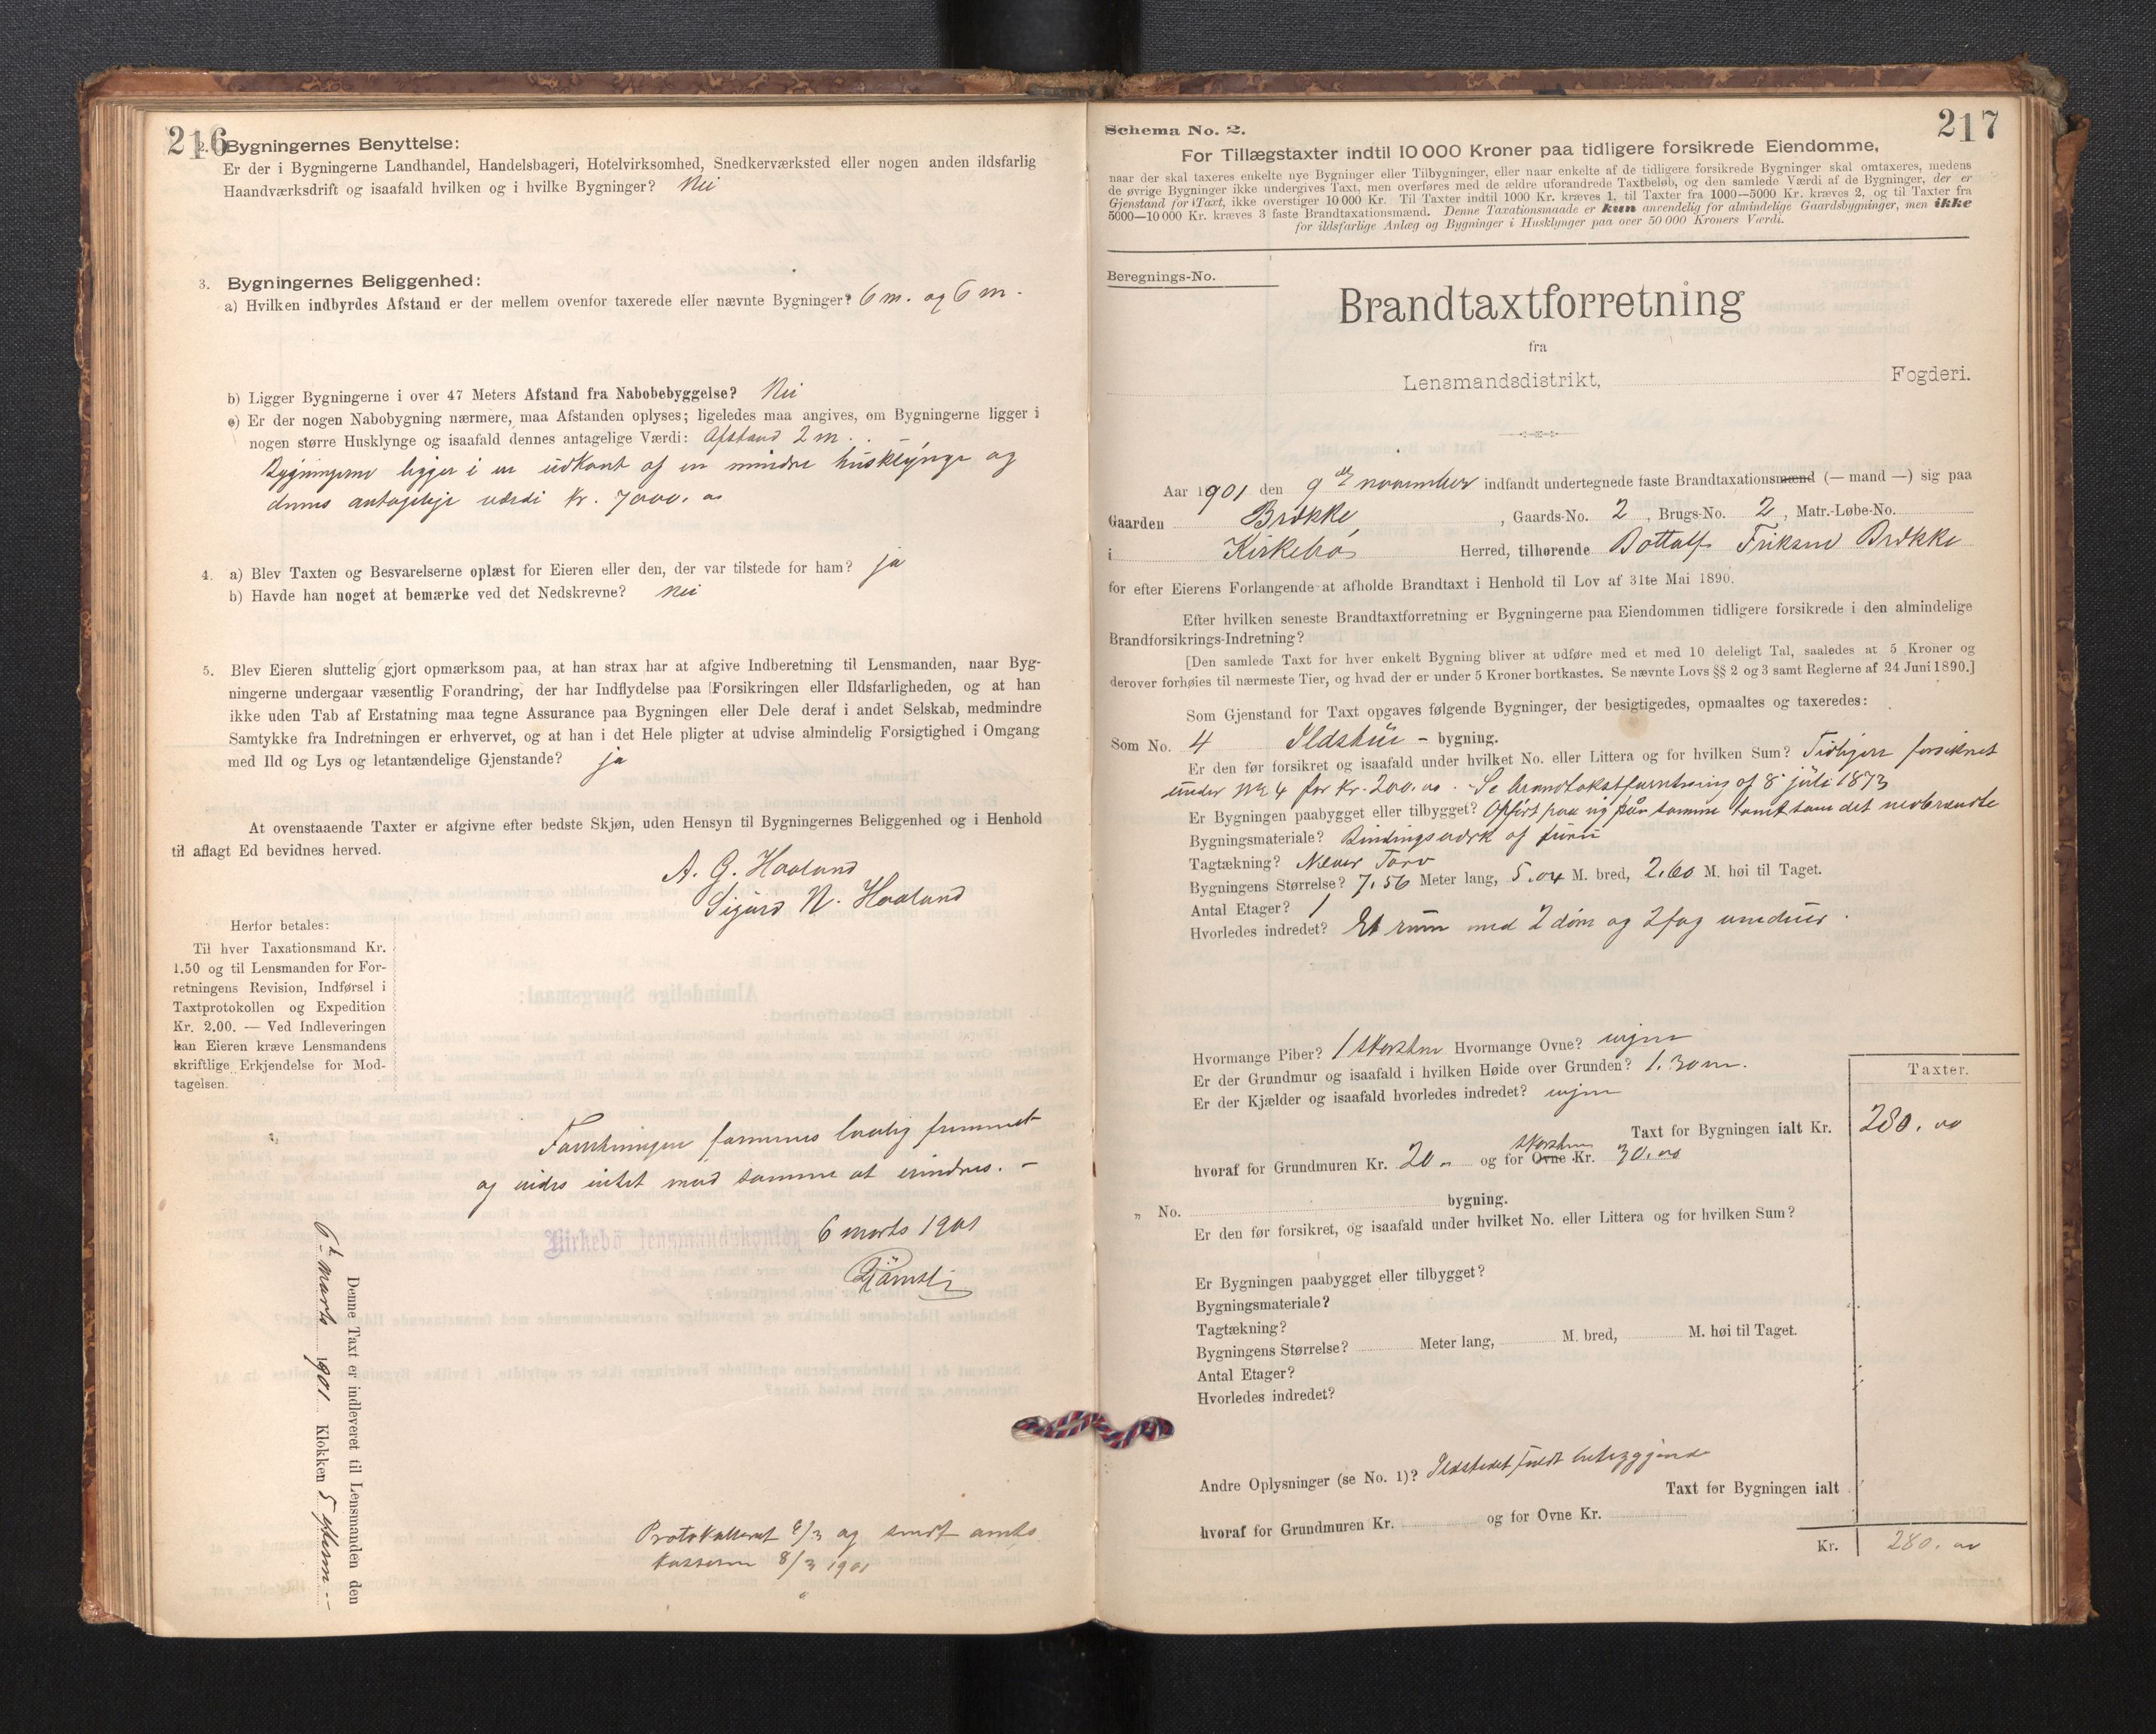 216
2. Bygningernes Benyttelse:
Er der i Bygningerne Landhandel, Handelsbageri, Hotelvirksomhed, Snedkerværksted eller nogen anden ildsfarlig
Haandværksdrift og isaafald hvilken og i hvilke Bygninger? Nei
3. Bygningernes Beliggenhed:
a) Hvilken indbyrdes Afstand er der mellem ovenfor taxerede eller nævnte Bygninger? 6 m. og 6 m.
b) Ligger Bygningerne i over 47 Meters Afstand fra Nabobebyggelse? Nei
c) Er der nogen Nabobygning nærmere, maa Afstanden oplyses; ligeledes maa angives, om Bygningerne ligger i
nogen større Husklynge og isaafald dennes antagelige Værdi: Afstand 2 m. –
Bygningerne ligger i en udkant af en mindre husklynge og
dennes antagelige værdi kr. 7000.00
4. a) Blev Taxten og Besvarelserne oplæst for Eieren eller den, der var tilstede for ham? ja
b) Havde han noget at bemærke ved det Nedskrevne? Nei
5. Blev Eieren sluttelig gjort opmærksom paa, at han strax har at afgive Indberetning til Lensmanden, naar Byg-
ningerne undergaar væsentlig Forandring, der har Indflydelse paa Forsikringen eller Ildsfarligheden, og at han
ikke uden Tab af Erstatning maa tegne Assurance paa Bygningen eller Dele deraf i andet Selskab, medmindre
Samtykke fra Indretningen er erhvervet, og at han i det Hele pligter at udvise almindelig Forsigtighed i Omgang
med Ild og Lys og letantændelige Gjenstande? ja
At ovenstaaende Taxter er afgivne efter bedste Skjøn, uden Hensyn til Bygningernes Beliggenhed og i Henhold
til aflagt Ed bevidnes herved.
A. G. Haaland
Sigurd N. Haaland
Herfor betales:
Til hver Taxationsmand Kr.
1.50 og til Lensmanden for For-
retningens Revision, Indførsel i
Taxtprotokollen og Expedition
Kr. 2.00. — Ved Indleveringen
kan Eieren kræve Lensmandens
skriftlige Erkjendelse for Mod-
tagelsen.
Forretningen formenes lovlig fremmet
og vides intet mod samme at erindres. –
Kirkebö lensmandskontor 6 marts 1901
Denne Taxt er indleveret til Lensmanden den
6te marts 1901 Klokken 5 efterm. –
Protokolleret 6/3 og sendt amts
kasseren 8/3 1901
217
Schema No. 2.
For Tillægstaxter indtil 10 000 Kroner paa tidligere forsikrede Eiendomme,
naar der skal taxeres enkelte nye Bygninger eller Tilbygninger, eller naar enkelte af de tidligere forsikrede Bygninger skal omtaxeres, medens
de øvrige Bygninger ikke undergives Taxt, men overføres med de ældre uforandrede Taxtbeløb, og den samlede Værdi af de Bygninger, der er
Gjenstand for Taxt, ikke overstiger 10 000 Kr. Til Taxter indtil 1000 Kr. kræves 1, til Taxter fra 1000—5000 Kr. kræves 2, og til Taxter fra
5000—10 000 Kr. kræves 3 faste Brandtaxationsmænd. Denne Taxationsmaade er kun anvendelig for almindelige Gaardsbygninger, men ikke
for ildsfarlige Anlæg og Bygninger i Husklynger paa over 50 000 Kroners Værdi.
Beregnings-No.
Brandtaxtforretning
fra
Lensmandsdistrikt, Fogderi.
Aar 1901 den 9de november indfandt undertegnede faste Brandtaxationsmænd (— mand —) sig paa
Gaarden Brække, Gaards-No. 2, Brugs-No. 2, Matr.-Løbe-No.
i Kirkebø Herred, tilhørende Bottolf Eriksen Brække
for efter Eierens Forlangende at afholde Brandtaxt i Henhold til Lov af 31te Mai 1890.
Efter hvilken seneste Brandtaxtforretning er Bygningerne paa Eiendommen tidligere forsikrede i den almindelige
Brandforsikrings-Indretning?
[Den samlede Taxt for hver enkelt Bygning bliver at udføre med et med 10 deleligt Tal, saaledes at 5 Kroner og
derover forhøies til nærmeste Tier, og hvad der er under 5 Kroner bortkastes. Se nævnte Lovs §§ 2 og 3 samt Reglerne af 24 Juni 1890.]
Som Gjenstand for Taxt opgaves følgende Bygninger, der besigtigedes, opmaaltes og taxeredes:
Som No. 4 Ildshus – bygning.
Er den før forsikret og isaafald under hvilket No. eller Littera og for hvilken Sum? Tidligere forsikret
under No 4 for kr. 200.00. Se brandtakstforretning af 8 juli 1873
Er Bygningen paabygget eller tilbygget? Opført paa ny paa samme tomt som det nedbrændte
Bygningsmateriale? Bindingsværk af furu
Tagtækning? Never Torv
Bygningens Størrelse? 7.56 Meter lang, 5.04 M. bred, 2.60 M. høi til Taget.
Antal Etager? 1
Hvorledes indredet? Et rum med 2 døre og 2 fag vinduer.
Hvormange Piber? 1 skorsten Hvormange Ovne? ingen
Er der Grundmur og isaafald i hvilken Høide over Grunden? 1.30 m.
Er der Kjælder og isaafald hvorledes indredet? ingen
Taxter.
Taxt for Bygningen ialt Kr. 280.00
hvoraf for Grundmuren Kr. 20 „ og for Ovne skorsten Kr. 30.00
„ No. bygning.
Er den før forsikret, og isaafald under hvilket No. eller Littera og for hvilken Sum?
Er Bygningen paabygget eller tilbygget?
Bygningsmateriale?
Tagtækning?
Bygningens Størrelse? Meter lang, M. bred, M. høi til Taget.
Antal Etager?
Hvorledes indredet?
Andre Oplysninger (se No. 1)? Ildstedet fuldt betryggende
Taxt for Bygningen ialt
hvoraf for Grundmuren Kr. og for Ovne Kr.
Kr. 280.00